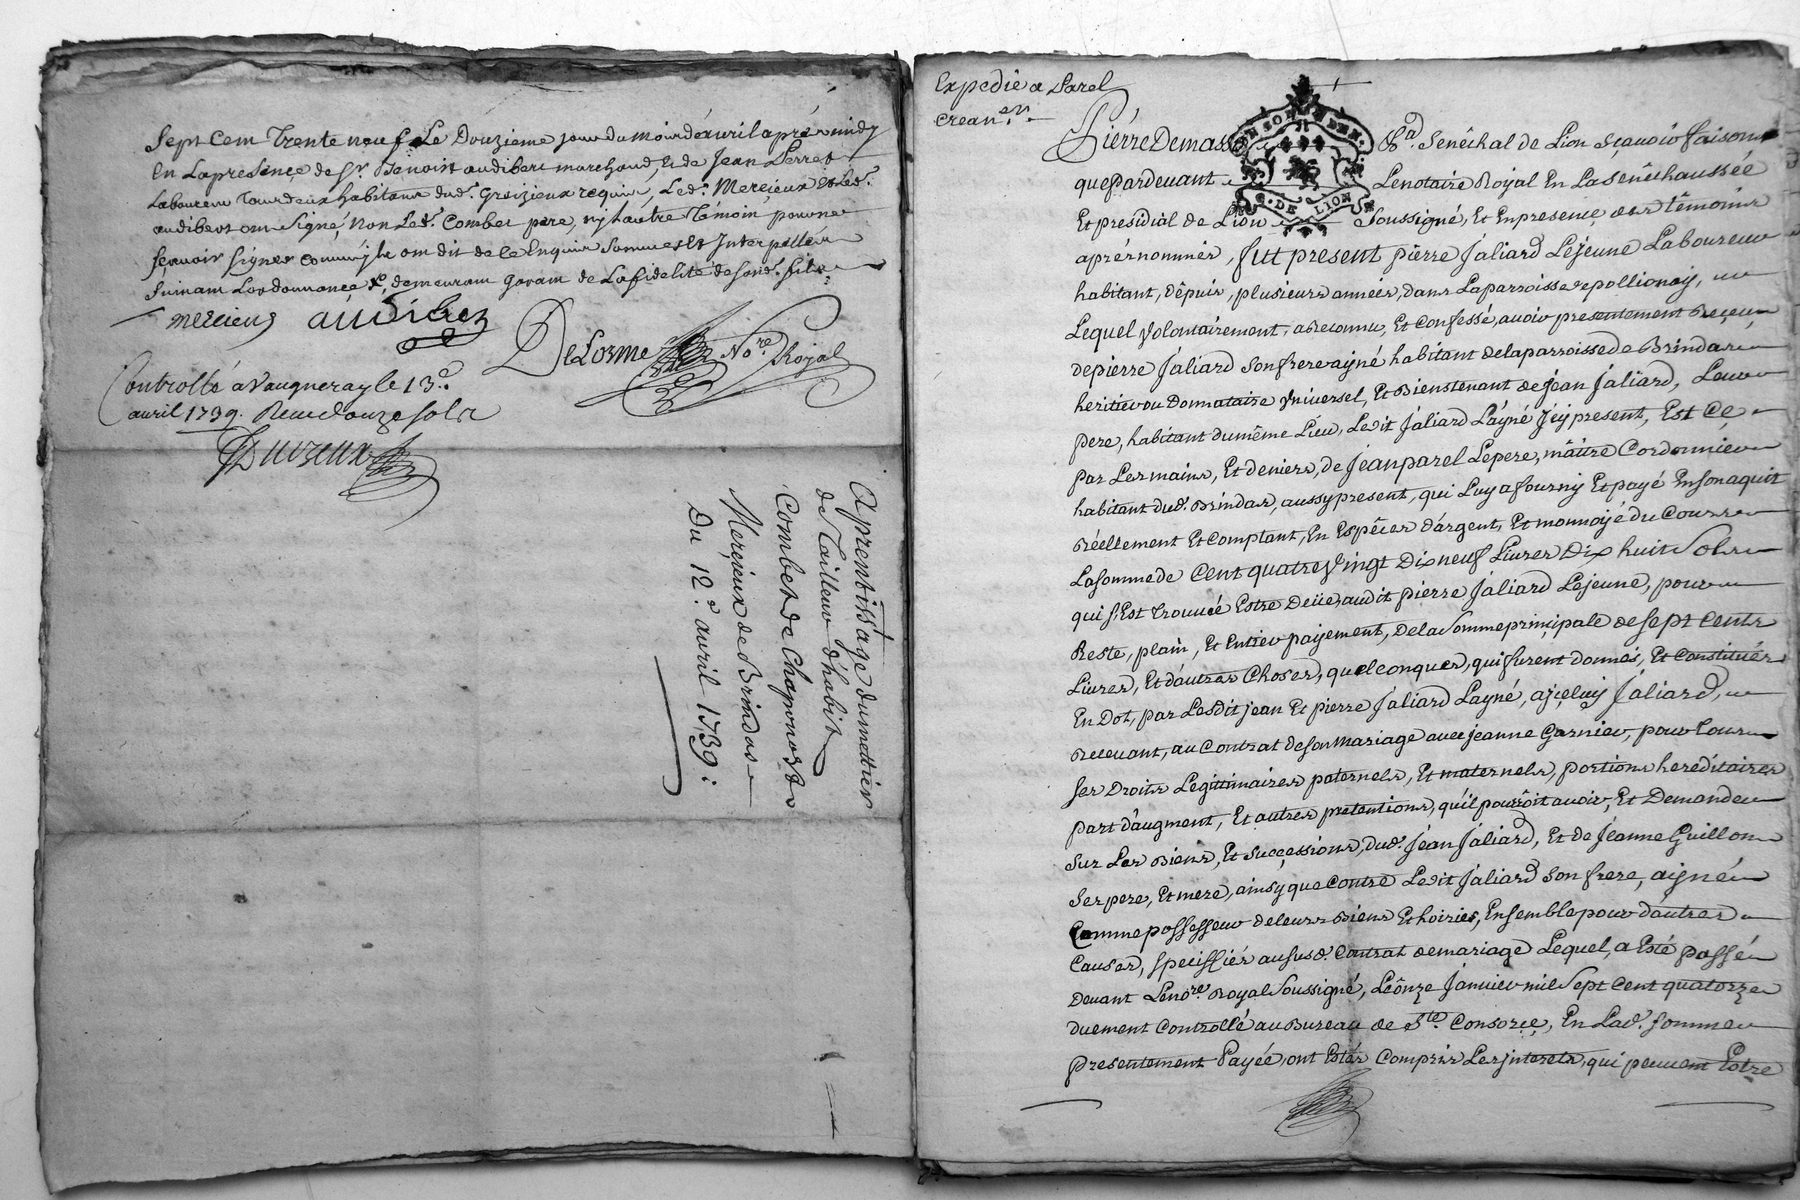 Sept Cent Trente neuf Le Douzieme jour du mois d'avril aprés midy
En La presence de Sr. Benoist audibert marchand, et de Jean Perret
Laboureur Tous deux habitans dud. Greizieux requis, Led. Merçieux et Led.
audibert ont Signé, non Led. Combet pere, ny L'autre Témoin pour ne
sçavoir signer comm'ils ont dit de ce Enquis Sommes et Interpellés
suivant L'ordonnance &, demeurant garant de La fidelité de sond. fils
mercieus audibert
DeLorme Nore. Royal
Controllé a Vaugneray le 13e.
avril 1739. Recu douze sols
Duvzeux
Aprentissage du mettier
de Tailleur d'habit
Combet de Chaponost
Merçieux de Brindas
Du 12e. avril 1739:
Expedié a Parel
Crean.er
Pierre Demasso Sénéchal de Lion Sçavoir faisons
que Pardevant Le notaire Royal En La sénéchaussée
Et presidial de Lion Soussigné, Et En presence des témoins
aprés nommés, fut present pierre Jaliard Le jeune Laboureur
habitant, dépuis, plusieurs années, dans La parroisse de pollionay,
Lequel Volontairement, a Reconnu, Et Confessé, avoir presentement Reçeu
de pierre Jaliard Son frere ayné habitant de la parroisse de Brindas
heritier ou Donnataire Universel, Et Bienstenant de jean jaliard, Leur
pere, habitant du même Lieu, Ledit Jaliard L'ayné Jcy present, Est Ce
par Les mains, Et deniers, de jean parel Le pere, mâitre Cordonnier
habitant dud. Brindas, aussy present, qui Luy a fourny Et payé En son aquit
Réellement Et Comptant, En Espêces d'argent, Et monnoyé du Cours
La somme de Cent quatre Vingt Dix neuf Livres Dix huit Sols
qui s'Est trouvée Estre Deüe, audit pierre Jaliard Le jeune, pour
Reste, plain, Et Entier payement, de la Somme principale de Sept Cents
Livres, Et d'autres Choses, quelconques, qui furent donnés, Et Constitués
En Dot, par Lesdit jean Et pierre Jaliard L'ayné, a jceluy Jaliard,
Recevant, au Contrat de son Mariage avec jeanne Garnier, pour tous
ses Droits Legittimaires paternels, Et maternels, portions hereditaires
part d'augment, Et autres pretentions, qu'il pourroit avoir, Et Demander
Sur Les Biens, Et Sucçessions, dud. Jean Jaliard, Et de Jeanne Guillon
Ses pere, Et mere, ainsy que Contre Ledit Jaliard Son frere, aisné
Comme possesseur de leurs Biens Et hoiries, Ensemble pour d'autres
Causes, speciffiés au susd. Contrat de mariage Lequel, a Esté passé
Devant Le Nore. Royal Soussigné, Le ônze Janvier mil Sept Cent quatorze
duement Controllé au Bureau de Ste. Consorçe, En Lad. somme
presentement Payée, ont Estés Compris Les jnterets, qui peuvent Estre